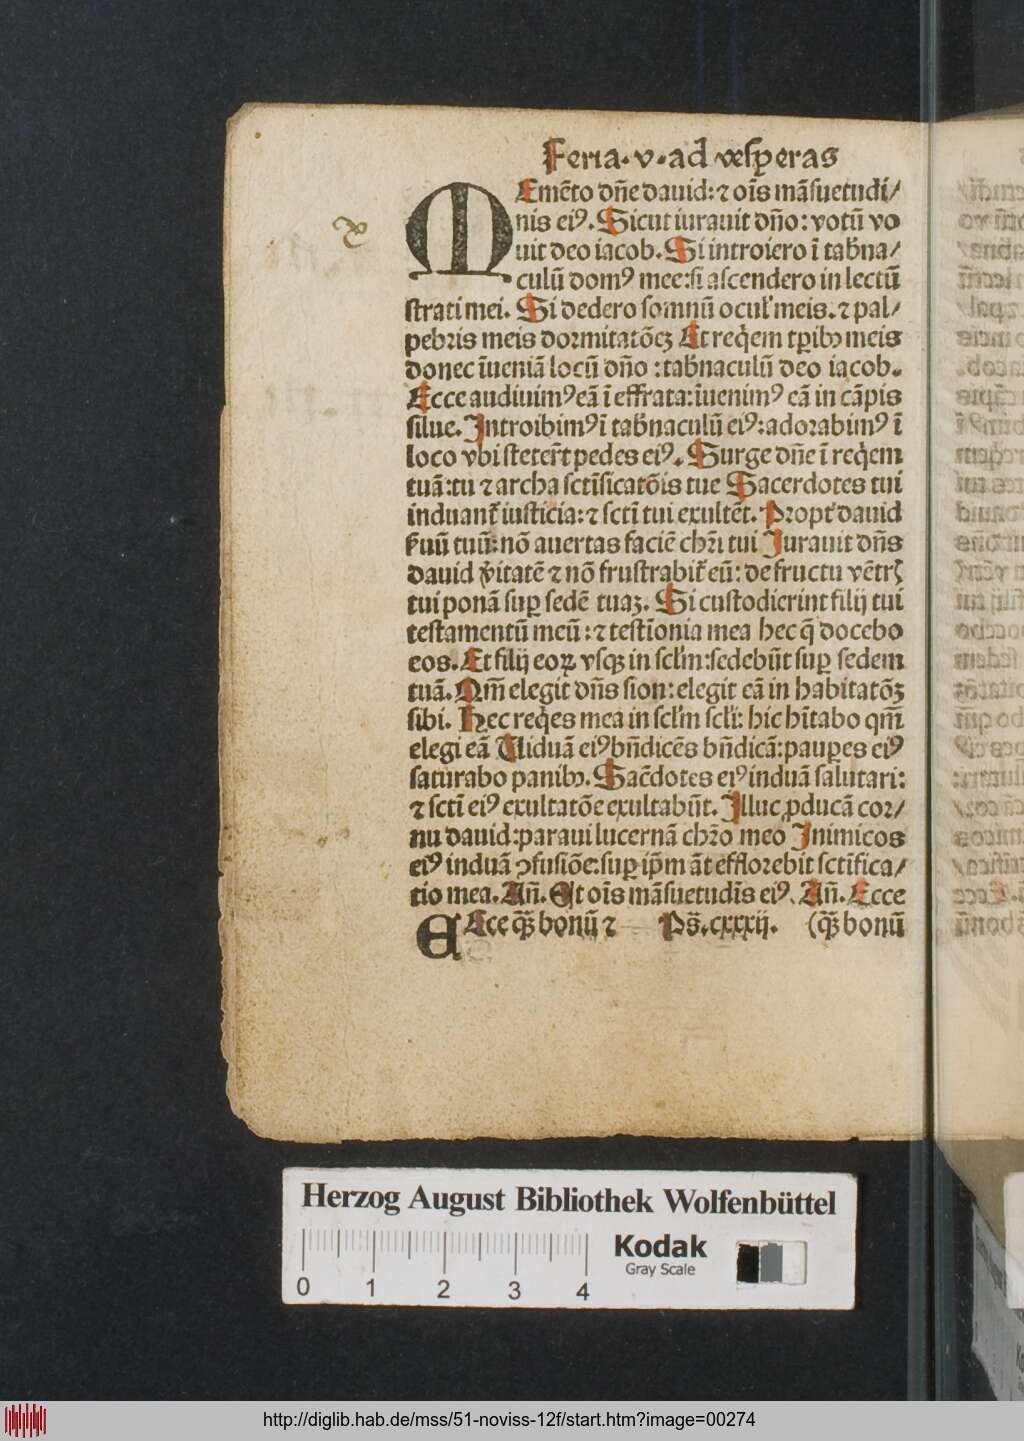 Feria. v. ad vesꝑas
MEmẽto dñe dauid: ⁊ oĩs mãsuetudi/
nis eiꝰ. Sicut iurauit dño: votũ vo
uit deo iacob. Si introiero ĩ tab̃na/
culũ domꝰ mee: si ascendero in lectũ
strati mei. Si dedero somnũ ocul' meis. ⁊ pal/
pebris meis dormitatõeꝫ Et req̃em tꝑibꝫ meis
donec ĩueniã locũ dño: tab̃naculũ deo iacob.
Ecce audiuimꝰ eã ĩ effrata: ĩuenimꝰ eã in cãpis
silue. Introibimꝰ ĩ tab̃naculũ eiꝰ: adorabimꝰ ĩ
loco vbi steter̃t pedes eiꝰ. Surge dñe ĩ req̃em
tuã: tu ⁊ archa sctĩficatõis tue Sacerdotes tui
induant᷑ iusticia: ⁊ sctĩ tui exultẽt. Propt᷑ dauid
s̃uũ tuũ: nõ auertas faciẽ chr̃i tui Iurauit dñs
dauid ṽitatẽ ⁊ nõ frustrabit᷑ eũ: de fructu vẽtrꝭ
tui ponã suꝑ sedẽ tuaꝫ. Si custodierint filij tui
testamentũ meũ: ⁊ testĩonia mea hec q̃ docebo
eos. Et filij eoꝝ vsqꝫ in scl'm: sedebũt suꝑ sedem
tuã. Qm̃ elegit dñs sion: elegit eã in habitatõꝫ
sibi. Hec req̃es mea in scl'm scl'i: hic hĩtabo qm̃
elegi eã Uiduã eiꝰ bñdicẽs bñdicã: pauꝑes eiꝰ
saturabo panibꝫ. Sac̃dotes eiꝰ induã salutari:
⁊ sctĩ eiꝰ exultatõe exultabũt. Illuc ꝓducã cor/
nu dauid: paraui lucernã chr̃o meo Inimicos
eiꝰ induã ꝯfusiõe: suꝑ ip̃m ãt efflorebit sctĩfica/
tio mea. Añ. Et oĩs mãsuetudĩs eiꝰ. Añ. Ecce
EEcce q̃ꝫ bonũ ⁊ Ps̃. cxxxij. (q̃ꝫ bonũ
Herzog August Bibliothek Wolfenbüttel
Kodak
Gray Scale
0 1 2 3 4
http://diglib.hab.de/mss/51-noviss-12f/start.htm?image=00274